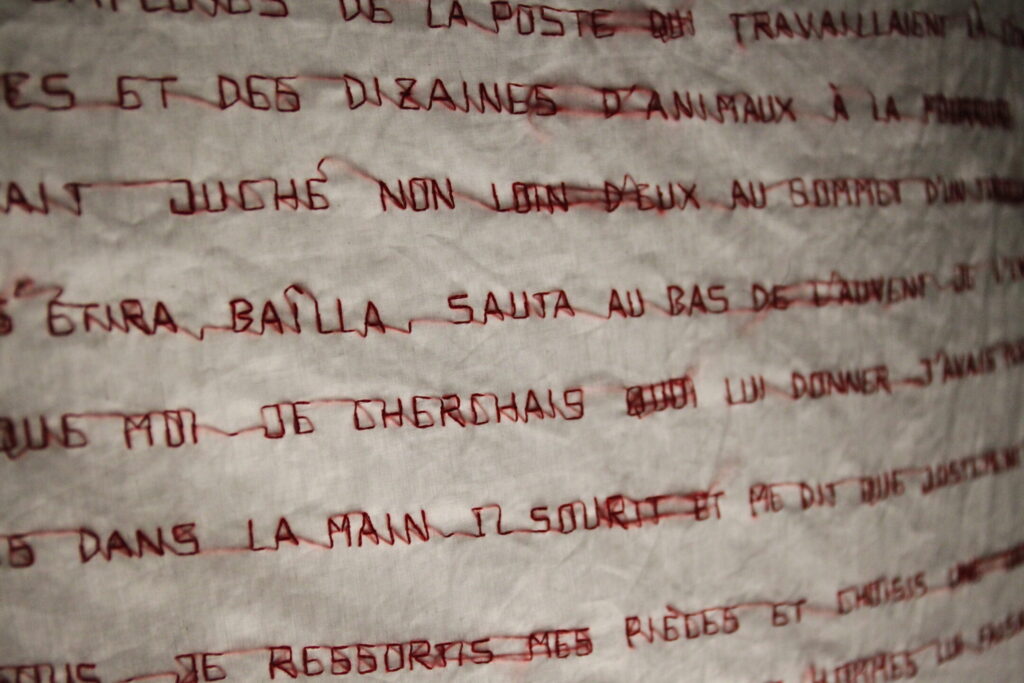 DE LA POSTE QUI TRAVAILLAIENT
ES ET DES DIZAINES D'ANIMAUX À LA
AIT JUCHÉ NON LOIN D'EUX AU SOMMET D'UN
ÉTIRA, BAÎLLA, SAUTA AU BAS DE L'AUVENT JE
QUE MOI JE CHERCHAIS QUOI LUI DONNER J'AVAIS
S DANS LA MAIN IL SOURIT ET ME DIT QUE JUSTEMENT
JE RESSORTIS MES PIÈCES ET CHOISIS UNE
HOMMES LUI